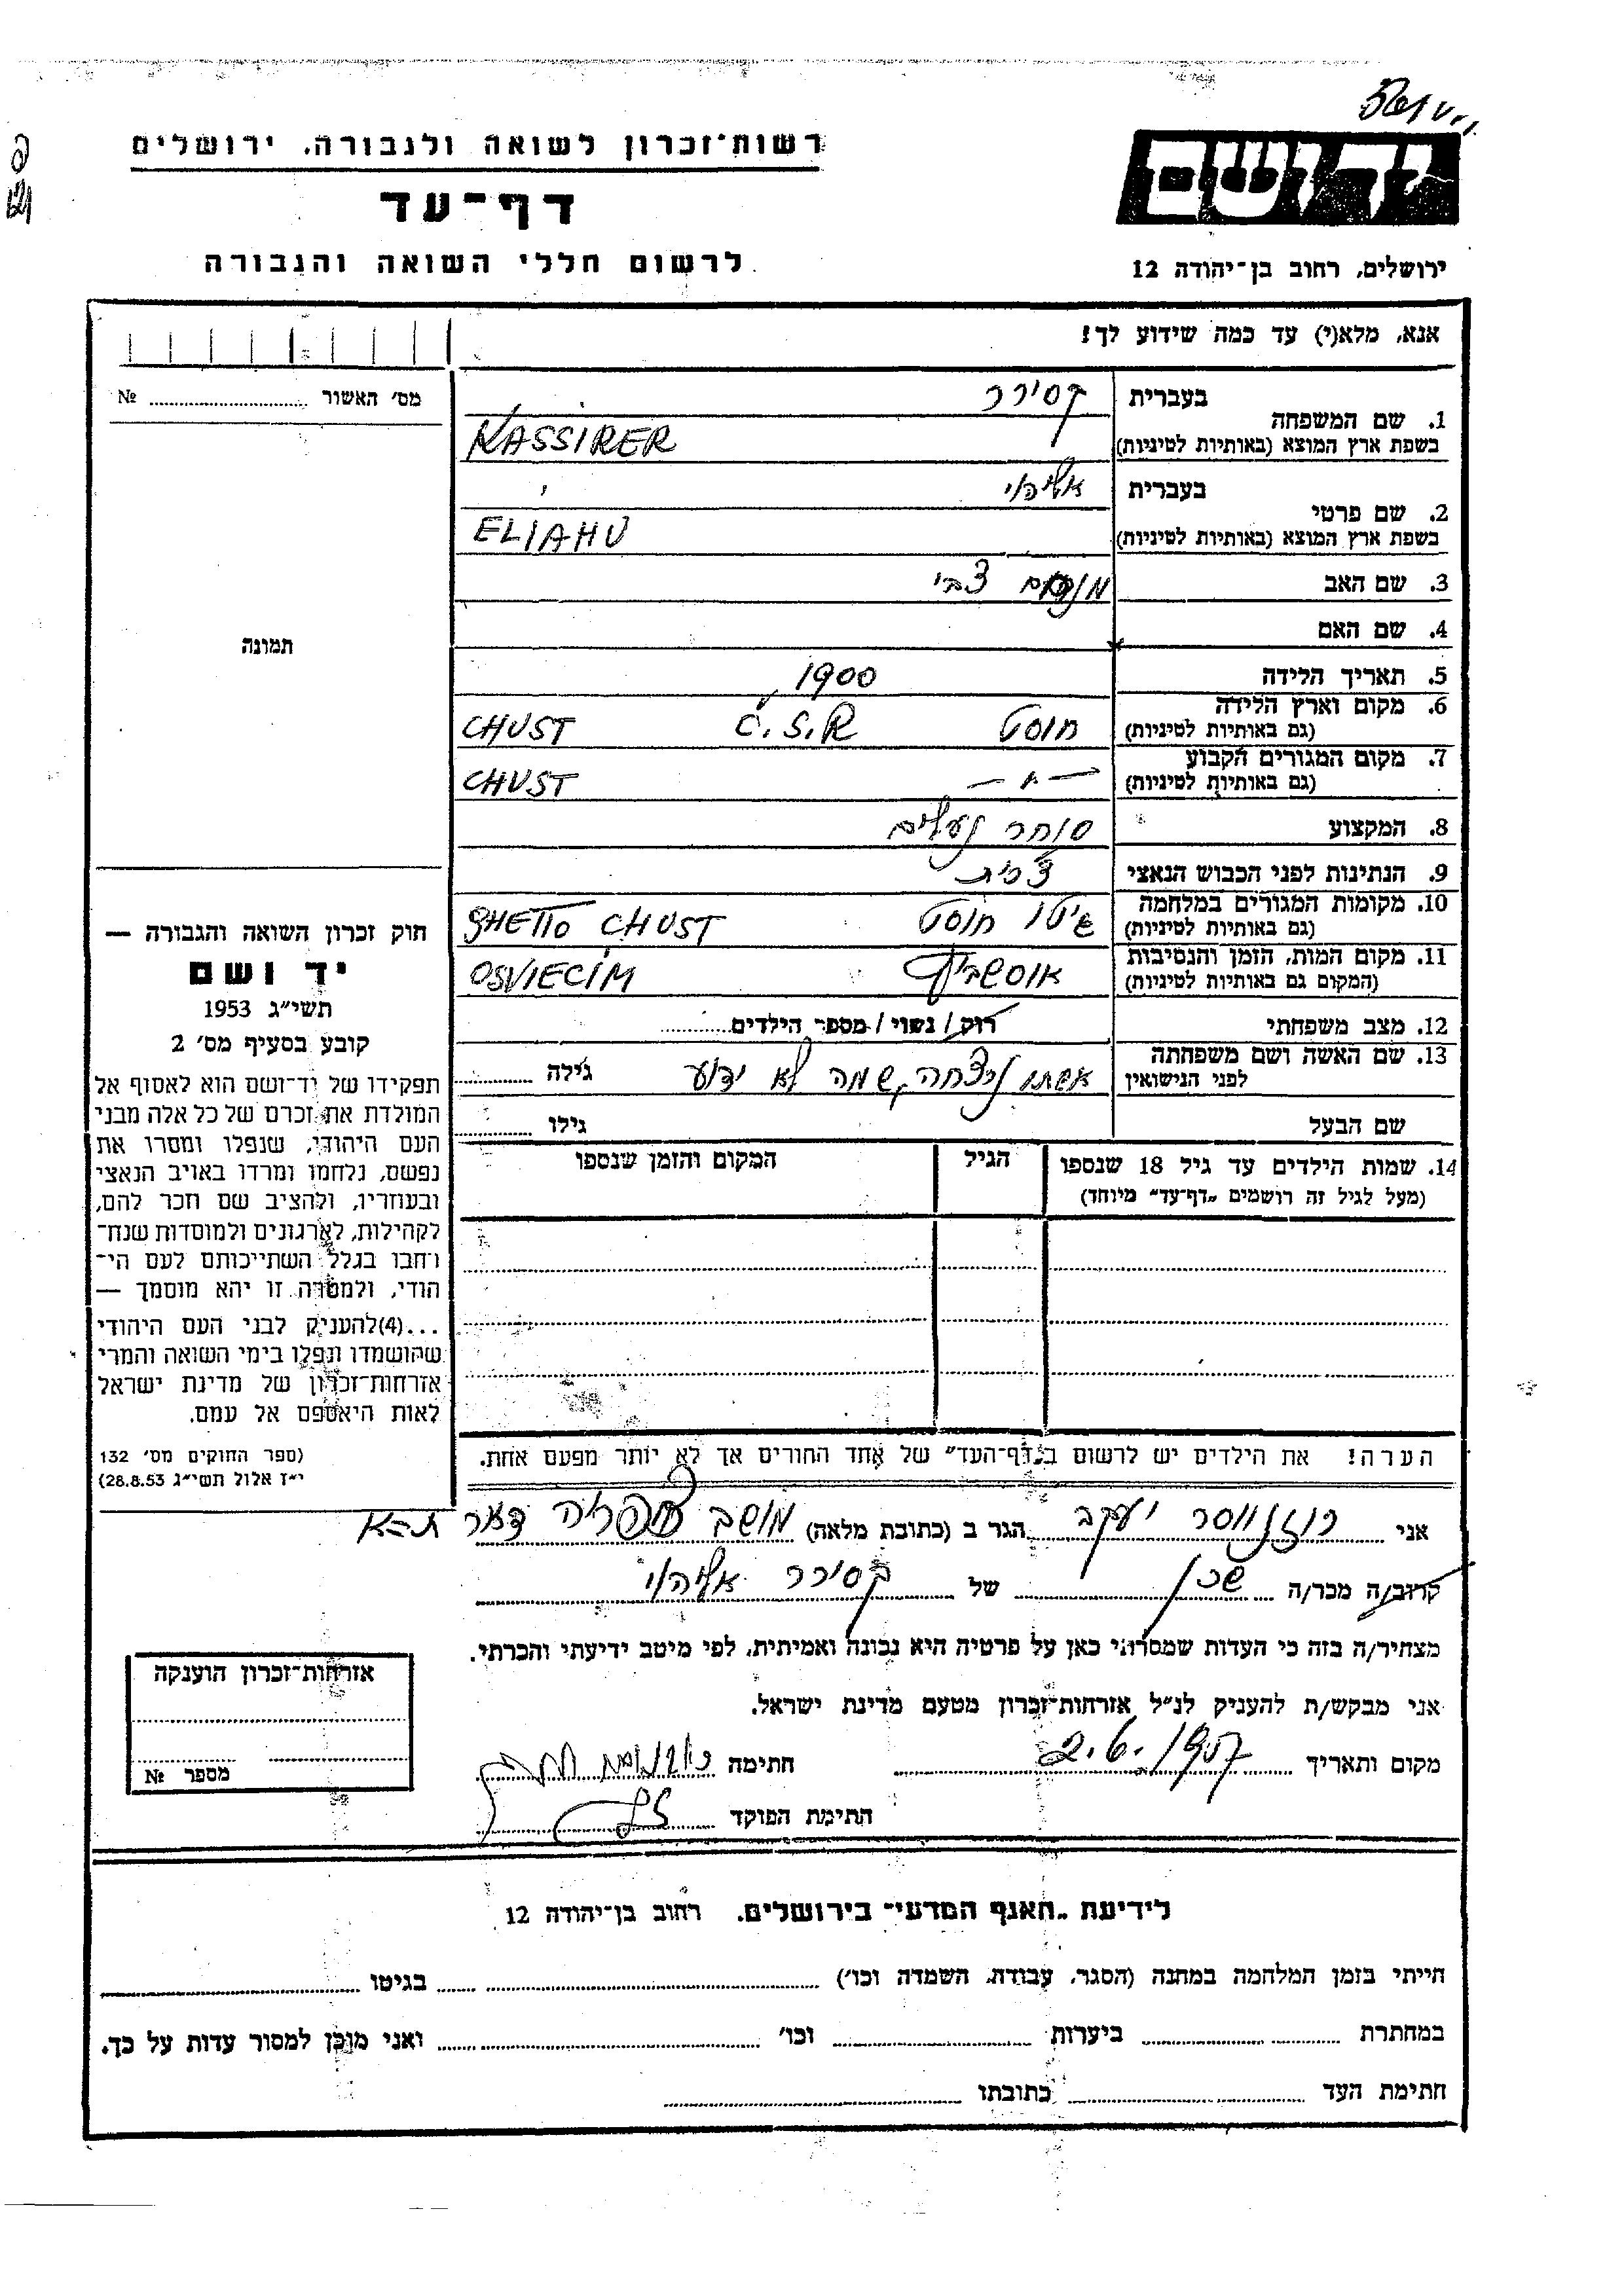 רשות־זכרון לשואה ולגבורה, ירושלים
דף־עד
לרשום חללי השואה והגבורה
יד ושם
ירושלים, רחוב בן־יהודה 12
אנא, מלא(י) עד כמה שידוע לך!
מס' האשור № 
1. שם המשפחה
בעברית קסירר
בשפת ארץ המוצא (באותיות לטיניות) KASSIRER
2. שם פרטי
בעברית אליהו
בשפת ארץ המוצא (באותיות לטיניות) ELIAHU
3. שם האב מנחם צבי
4. שם האם
5. תאריך הלידה 1900
6. מקום וארץ הלידה
(גם באותיות לטיניות) חוסט C.S.R CHUST
7. מקום המגורים הקבוע
(גם באותיות לטיניות) — " — CHUST
8. המקצוע סוחר נעלים
9. הנתינות לפני הכבוש הנאצי צ'כית
10. מקומות המגורים במלחמה
(גם באותיות לטיניות) גיטו חוסט GHETTO CHUST
11. מקום המות, הזמן והנסיבות
(המקום גם באותיות לטיניות) אושביץ OSVIECIM
12. מצב משפחתי רוק / נשוי / מספר הילדים
13. שם האשה ושם משפחתה
לפני הנישואין אשתו נרצחה, שמה לא ידוע גילה
שם הבעל גילו
14. שמות הילדים עד גיל 18 שנספו הגיל המקום והזמן שנספו
(מעל לגיל זה רושמים „דף־עד" מיוחד)
הערה! את הילדים יש לרשום ב„דף־העד" של אחד ההורים אך לא יותר מפעם אחת.
תמונה
חוק זכרון השואה והגבורה —
יד ושם
תשי״ג 1953
קובע בסעיף מס' 2
תפקידו של יד־ושם הוא לאסוף אל
המולדת את זכרם של כל אלה מבני
העם היהודי, שנפלו ומסרו את
נפשם, נלחמו ומרדו באויב הנאצי
ובעוזריו, ולהציב שם וזכר להם,
לקהילות, לארגונים ולמוסדות שנח־
רחבו בגלל השתייכותם לעם הי־
הודי, ולמטרה זו יהא מוסמך —
...(4)להעניק לבני העם היהודי
שהושמדו ונפלו בימי השואה והמרי
אזרחות־זכרון של מדינת ישראל
לאות היאספם אל עמם.
(ספר החוקים מס' 132
י״ז אלול תשי״ג 28.8.53)
אני רוזנווסר יעקב הגר ב (כתובת מלאה) מושב עופריה דאר ת-א
קרוב/ה מכר/ה שכן של קסירר אליהו
מצהיר/ה בזה כי העדות שמסרתי כאן על פרטיה היא נכונה ואמיתית, לפי מיטב ידיעתי והכרתי.
אני מבקש/ת להעניק לנ״ל אזרחות־זכרון מטעם מדינת ישראל.
מקום ותאריך 2.6.1957 חתימה
חתימת הפוקד
אזרחות־זכרון הוענקה
מספר №
לידיעת „האגף המדעי" בירושלים, רחוב בן־יהודה 12
חייתי בזמן המלחמה במחנה (הסגר, עבודה, השמדה וכו') בגיטו
במחתרת ביערות וכו' ואני מוכן למסור עדות על כך.
חתימת העד כתובתו